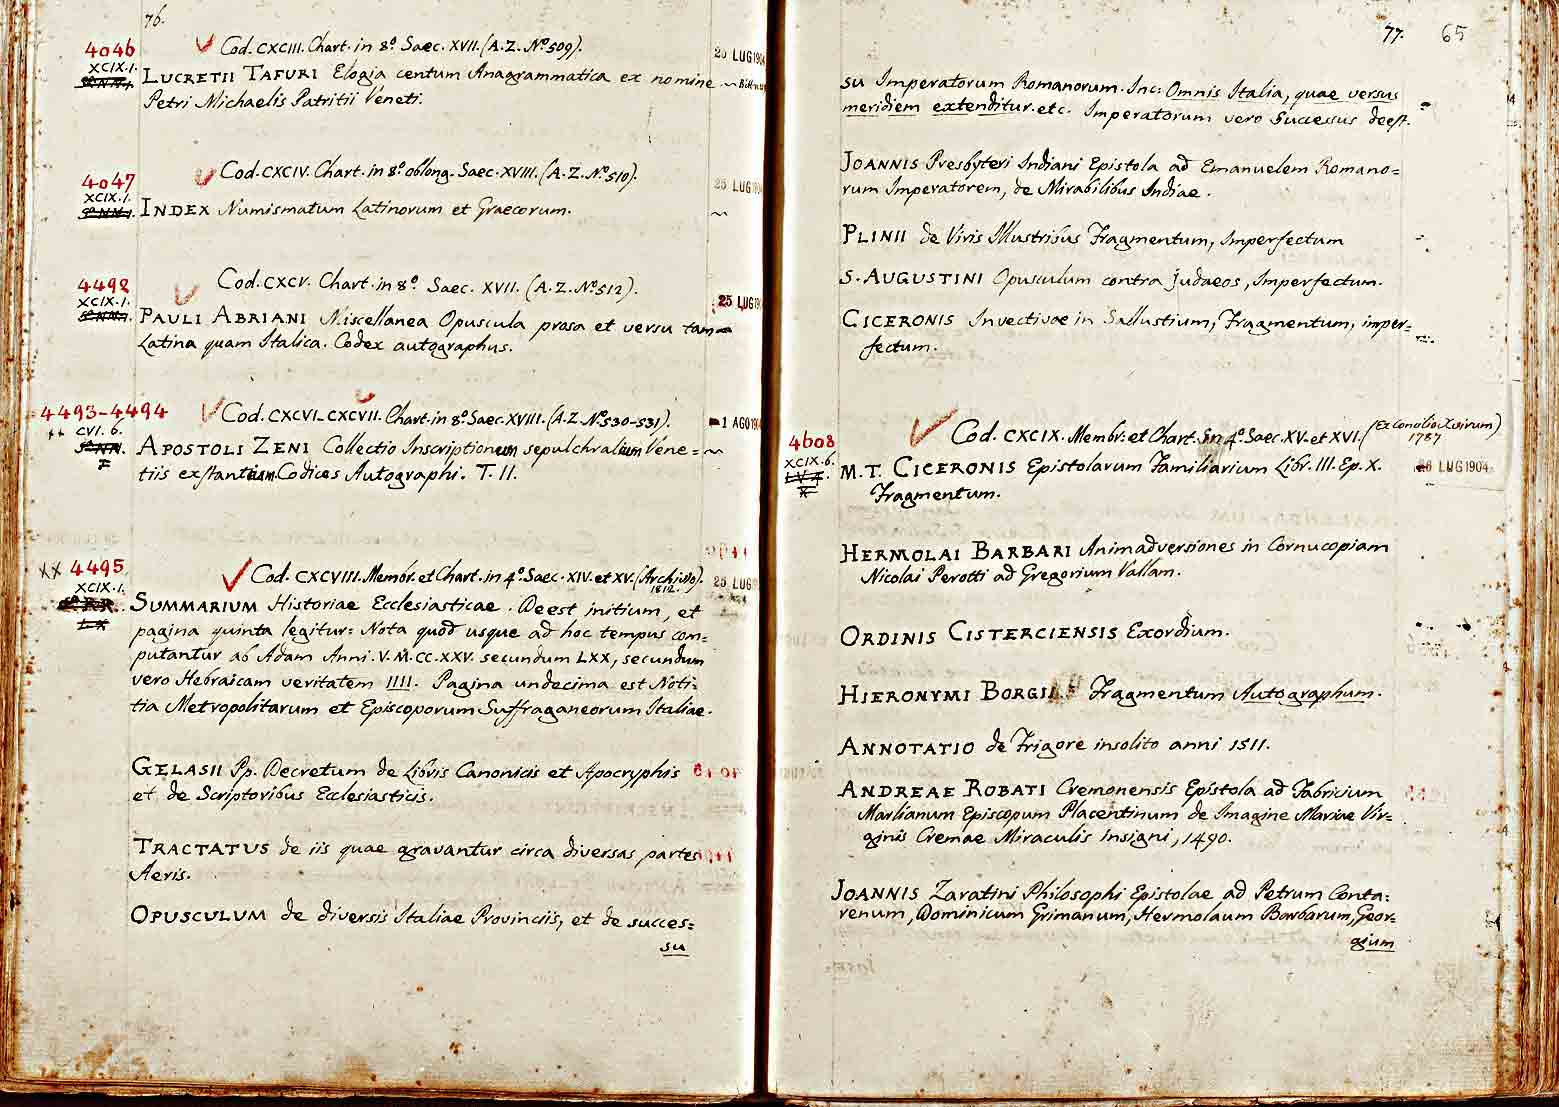 76.
4046
Cod. CXCIII. Chart. in 8º Saec. XVII. (A. Z. Nº 509).
XCIX.1.
25 LUG 1904
LUCRETII TAFURI Elogia centum Anagrammatica ex nomine
Petri Michaelis Patritii Veneti.
4047
Cod. CXCIV. Chart. in 8º oblong. Saec. XVIII. (A. Z. Nº 510).
XCIX.1.
25 LUG
INDEX Numismatum Latinorum et Graecorum.
4492
Cod. CXCV. Chart. in 8º Saec. XVII. (A. Z. Nº 512).
XCIX.1.
25 LUG
PAULI ABRIANI Miscellanea Opuscula prosa et versu tam
Latina quam Italica. Codex autographus.
4493-4494
Cod. CXCVI_CXCVII. Chart. in 8º Saec. XVIII. (A. Z. Nº 530-531).
CVI. 6.
1 AGO
APOSTOLI ZENI Collectio Inscriptionum sepulchralium Vene=
tiis exstantium Codices Autographi. T. II.
xx 4495
Cod. CXCVIII. Membr. et Chart. in 4º Saec. XIV. et XV. (Archivio).
1812.
XCIX.1.
25 LUG
SUMMARIUM Historiae Ecclesiasticae. Deest initium, et
pagina quinta legitur: Nota quod usque ad hoc tempus com=
putantur ab Adam Anni. V. M. CC. XXV. secundum LXX, secundum
vero Hebraicam veritatem IIII. Pagina undecima est Noti=
tia Metropolitarum et Episcoporum Suffraganeorum Italiae.
GELASII Pp. Decretum de Libris Canonicis et Apocryphis
et de Scriptoribus Ecclesiasticis.
TRACTATUS de iis quae gravantur circa diversas partes
Aeris.
OPUSCULUM de diversis Italiae Provinciis, et de succes=
su
77. 65
su Imperatorum Romanorum. Inc: Omnis Italia, quae versus
meridiem extenditur. etc. Imperatorum vero Successus deest.
JOANNIS Presbyteri Indiani Epistola ad Emanuelem Romano=
rum Imperatorem, de Mirabilibus Indiae.
PLINII de Viris Illustribus Fragmentum, Imperfectum
S. AUGUSTINI Opusculum contra Judaeos, Imperfectum.
CICERONIS Invectivae in Sallustium, Fragmentum, imper=
fectum.
4608
Cod. CXCIX. Membr. et Chart. in 4º Saec. XV. et XVI. (Ex Concilio Xvirum)
1787
XCIX. 6.
26 LUG 1904
M. T. CICERONIS Epistolarum Familiarium Libr. III. Ep. X.
Fragmentum.
HERMOLAI BARBARI Animadversiones in Cornucopiam
Nicolai Perotti ad Gregorium Vallam.
ORDINIS CISTERCIENSIS Exordium.
HIERONYMI BORGII Fragmentum Autographum.
ANNOTATIO de Frigore insolito anni 1511.
ANDREAE ROBATI Cremonensis Epistola ad Fabricium
Marlianum Episcopum Placentinum de Imagine Mariae Vir=
ginis Cremae Miraculis insigni, 1490.
JOANNIS Zaratini Philosophi Epistolae ad Petrum Conta=
renum, Dominicum Grimanum, Hermolaum Barbarum, Geor=
gium